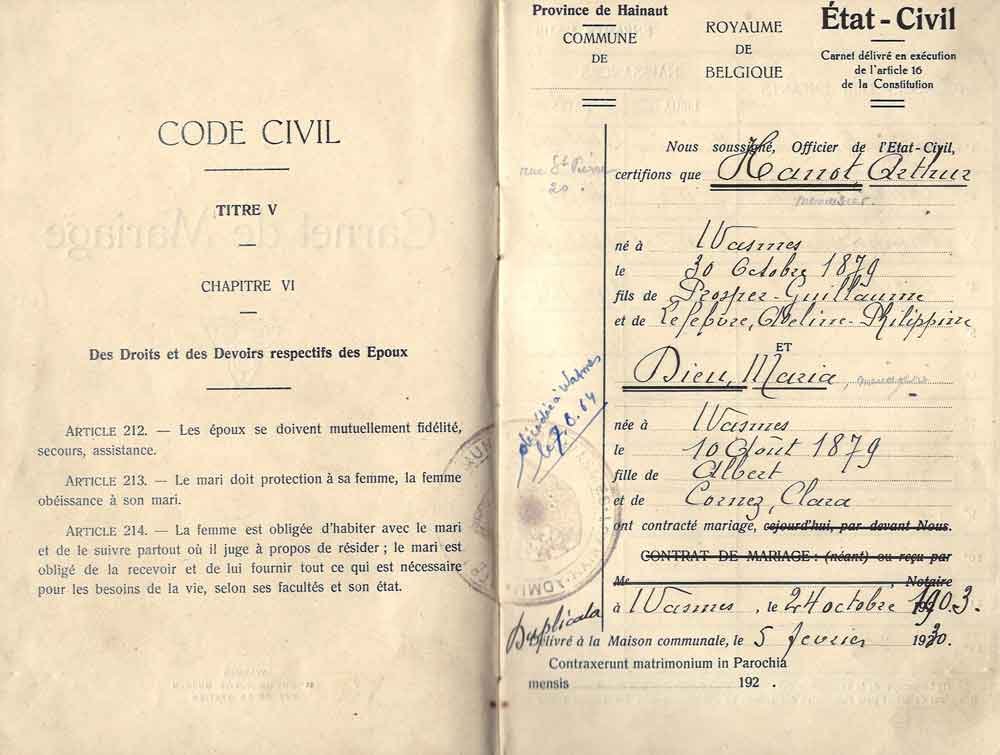 CODE CIVIL
TITRE V
CHAPITRE VI
Des Droits et des Devoirs respectifs des Epoux
ARTICLE 212. — Les époux se doivent mutuellement fidélité,
secours, assistance.
ARTICLE 213. — Le mari doit protection à sa femme, la femme
obéissance à son mari.
ARTICLE 214. — La femme est obligée d'habiter avec le mari
et de le suivre partout où il juge à propos de résider ; le mari est
obligé de la recevoir et de lui fournir tout ce qui est nécessaire
pour les besoins de la vie, selon ses facultés et son état.
Province de Hainaut
COMMUNE
DE
ROYAUME
DE
BELGIQUE
État-Civil
Carnet délivré en exécution
de l'article 16
de la Constitution
Nous soussigné, Officier de l'Etat-Civil,
certifions que Hanot, Arthur
rue St Pierre
20.
né à Wasmes
le 30 Octobre 1879
fils de Prosper-Guillaume
et de Lefebvre, Adeline-Philippine
ET
Dieu, Maria,
née à Wasmes
le 10 Août 1879
fille de Albert
et de Cornez, Clara
décédée à Wasmes
le 7.8.64
ont contracté mariage, cejourd'hui, par devant Nous.
CONTRAT DE MARIAGE : (néant) ou reçu par
Me , Notaire
à Wasmes, le 24 octobre 1903.
Duplicata
Délivré à la Maison communale, le 5 fevrier 1930.
Contraxerunt matrimonium in Parochia
mensis 192 .